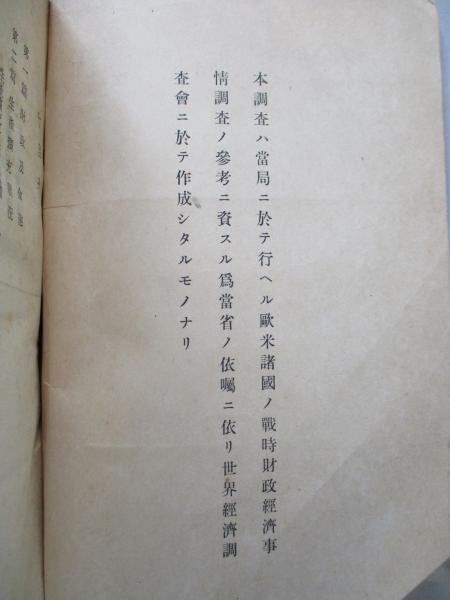 本調査ハ當局ニ於テ行ヘル歐米諸國ノ戰時財政經濟事
情調査ノ參考ニ資スル爲當省ノ依囑ニ依リ世界經濟調
査會ニ於テ作成シタルモノナリ
第一節財政及金融
第二節